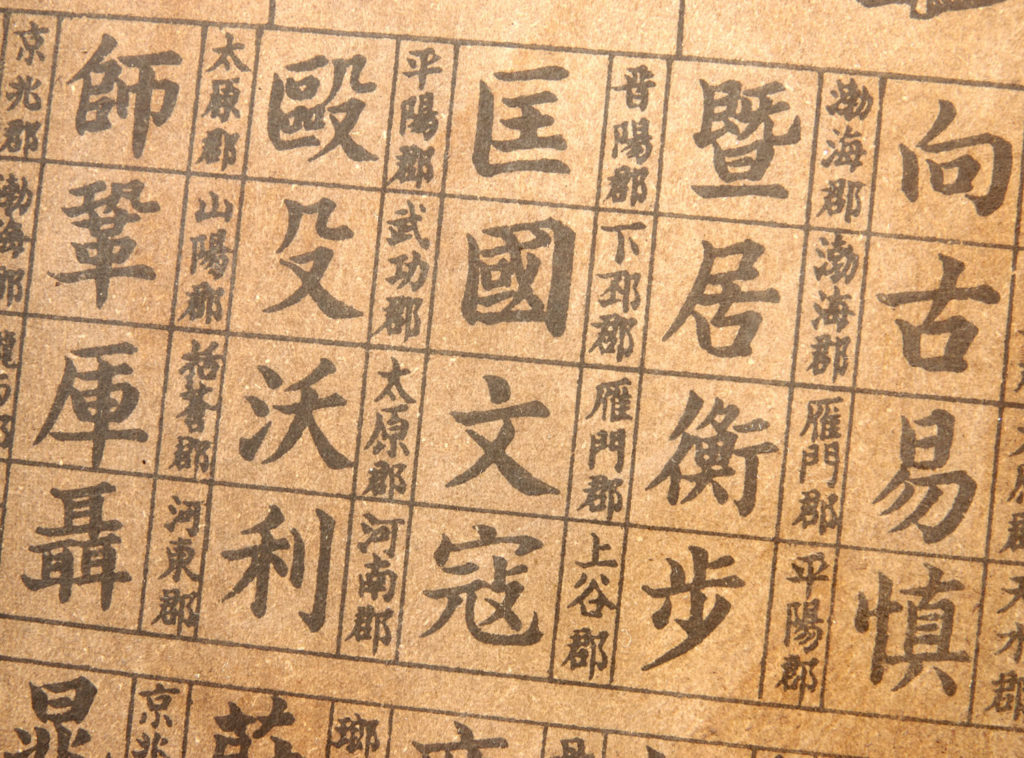 太原郡
天水郡
向古易慎
渤海郡
渤海郡
雁門郡
平陽郡
暨居衡步
晉陽郡
下邳郡
雁門郡
上谷郡
匡國文寇
平陽郡
武功郡
太原郡
河南郡
毆殳沃利
太原郡
山陽郡
括蒼郡
河東郡
師鞏厙聶
京兆郡
渤海郡
瑯
京兆
晁